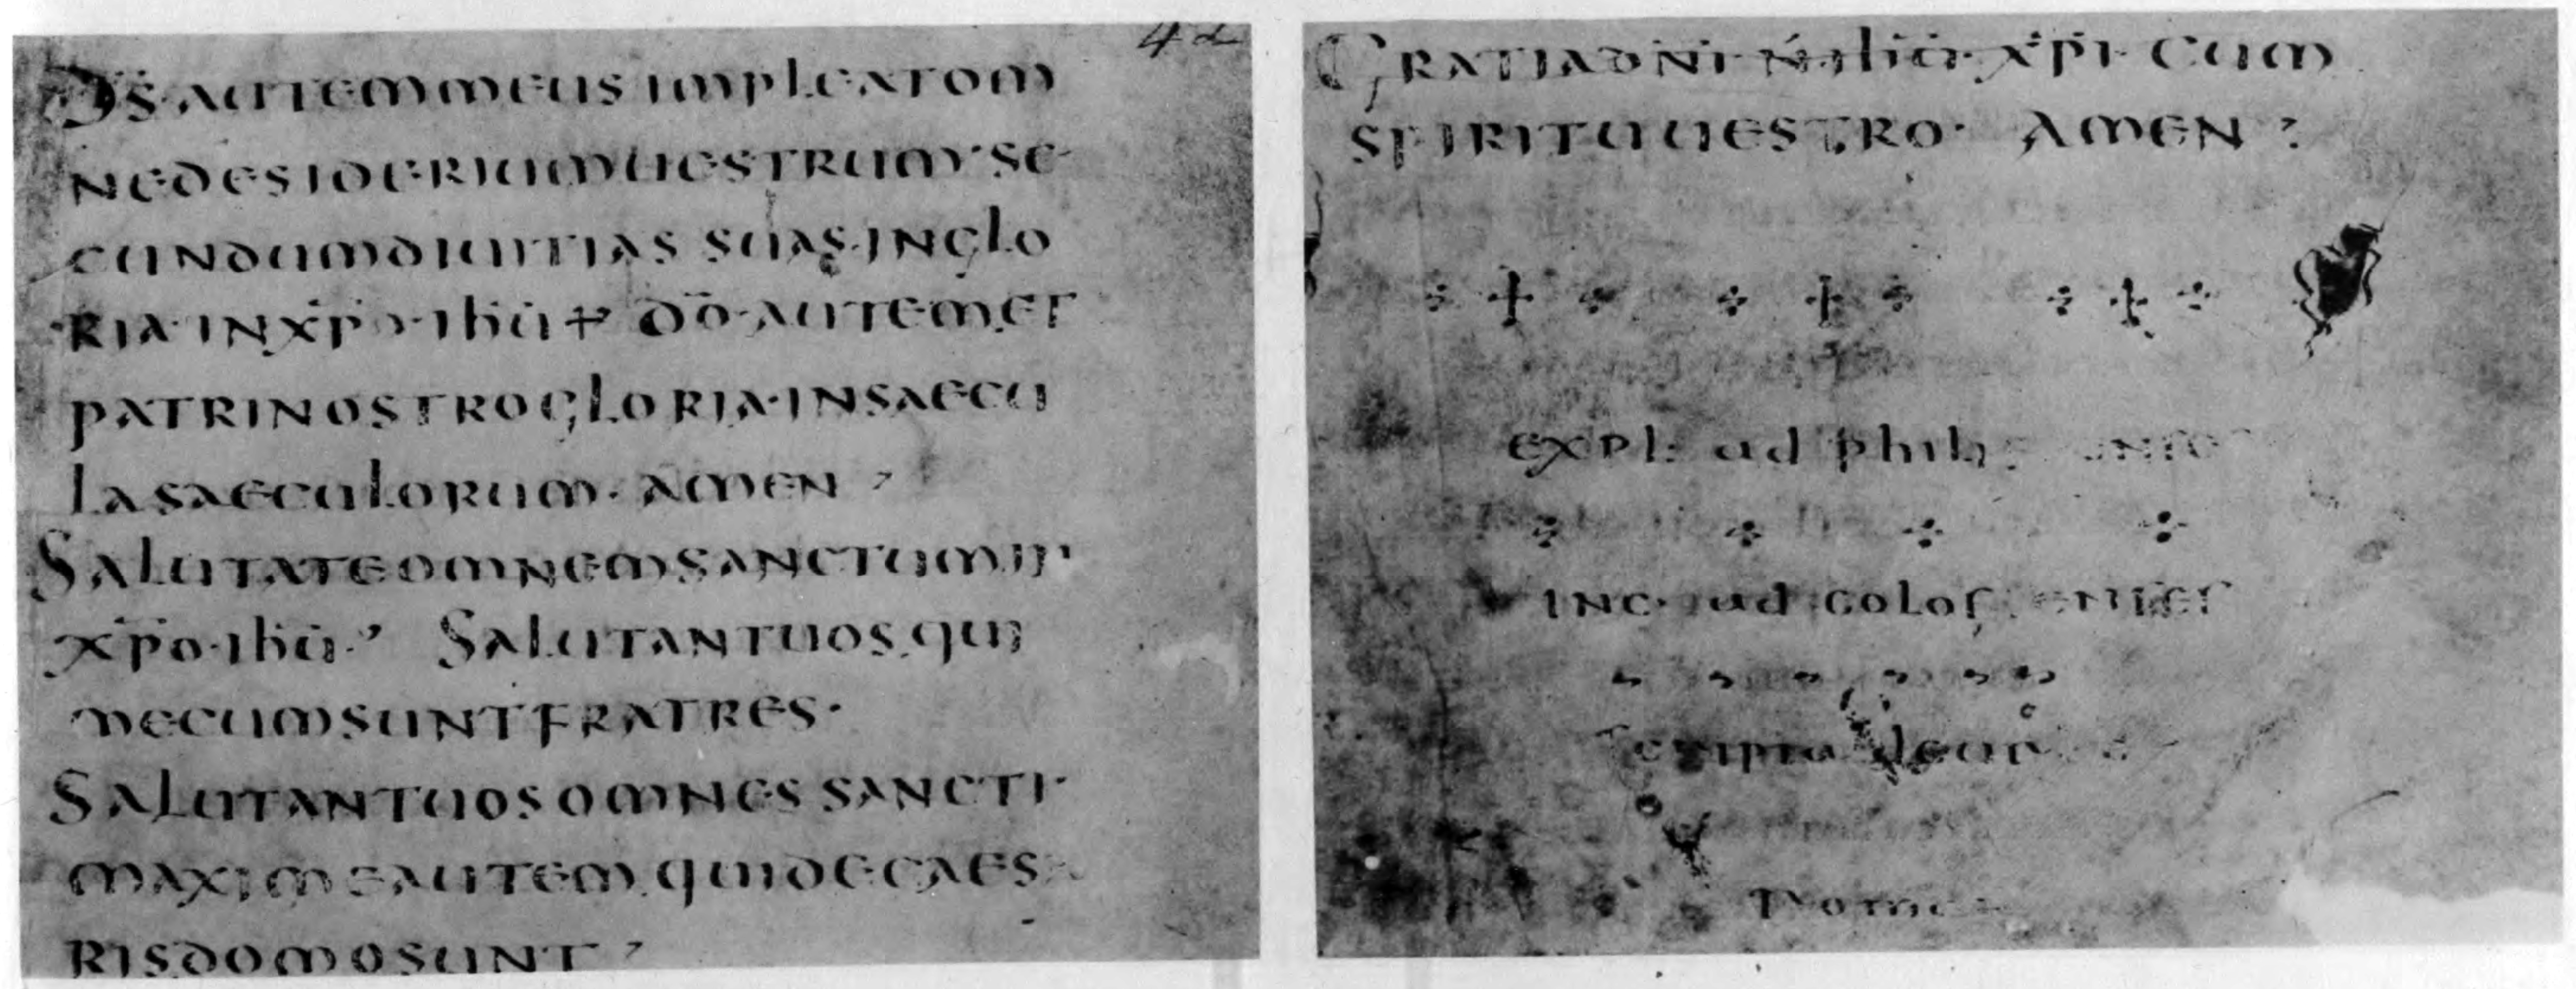 4d
D̄S·AUTEM MEUS IMPLEAT OM
NE DESIDERIUM UESTRUM· SE
CUNDUM DIUITIAS SUAS·IN GLO
RIA·IN X̄P̄O·IH̄Ū D̄O·AUTEM ET
PATRI NOSTRO GLORIA·IN SAECU
LA SAECULORUM· AMEN
SALUTATE OMNEM SANCTUM IN
X̄P̄O·IH̄Ū· SALUTANT UOS QUI
MECUM SUNT FRATRES·
SALUTANT UOS OMNES SANCTI·
MAXIME AUTEM QUI DE CAESA
RIS DOMO SUNT
GRATIA D̄N̄I·N̄·IH̄Ū·X̄P̄I·CUM
SPIRITU UESTRO· AMEN
EXPL· ad
INC· ad
scripta